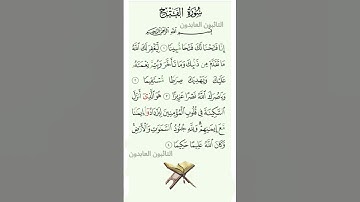 سُورَةُ الفَتْحِ
التائبون العابدون
بِسْمِ اللَّهِ الرَّحْمَٰنِ الرَّحِيمِ
إِنَّا فَتَحْنَا لَكَ فَتْحًا مُّبِينًا ١ لِّيَغْفِرَ لَكَ ٱللَّهُ
مَا تَقَدَّمَ مِن ذَنۢبِكَ وَمَا تَأَخَّرَ وَيُتِمَّ نِعْمَتَهُۥ
عَلَيْكَ وَيَهْدِيَكَ صِرَٰطًا مُّسْتَقِيمًا ٢
وَيَنصُرَكَ ٱللَّهُ نَصْرًا عَزِيزًا ٣ هُوَ ٱلَّذِىٓ أَنزَلَ
ٱلسَّكِينَةَ فِى قُلُوبِ ٱلْمُؤْمِنِينَ لِيَزْدَادُوٓا۟ إِيمَٰنًا
مَّعَ إِيمَٰنِهِمْ ۗ وَلِلَّهِ جُنُودُ ٱلسَّمَٰوَٰتِ وَٱلْأَرْضِ ۚ
وَكَانَ ٱللَّهُ عَلِيمًا حَكِيمًا ٤
التائبون العابدون